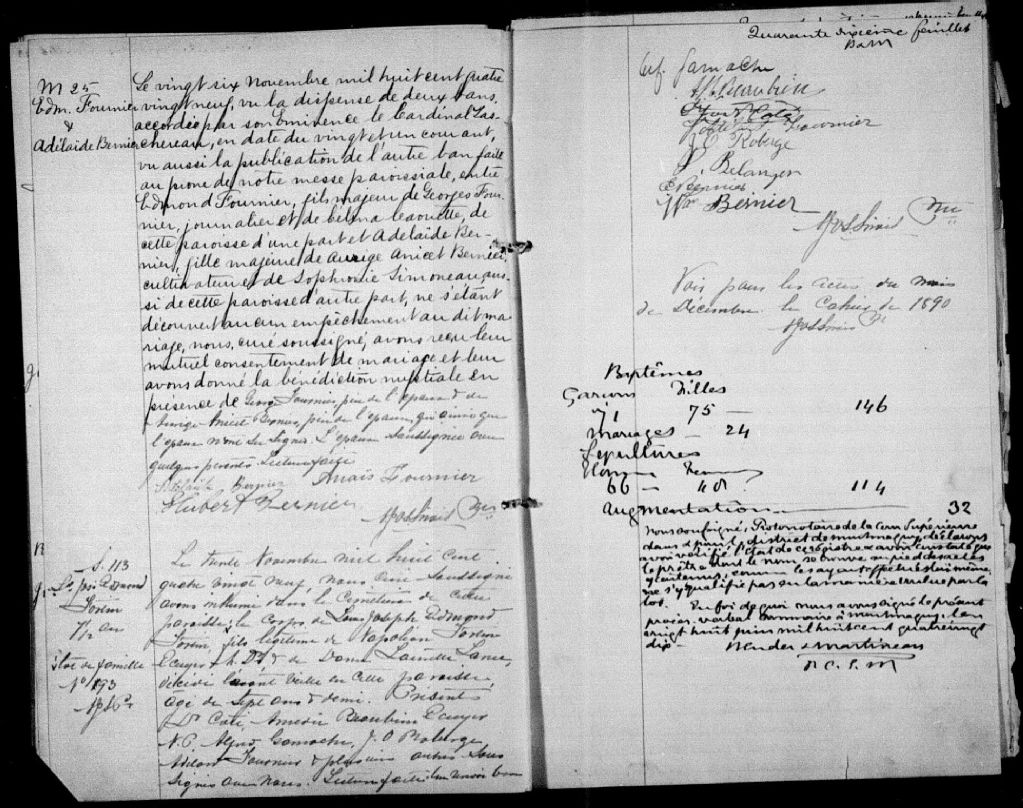 M 25
Edm. Fournier
&
Adélaide Bernier
Le vingt six Novembre mil huit cent quatre
vingt neuf, vu la dispense de deux bans,
accordée par son Eminence le Cardinal Tas-
chereau, en date du vingt et un courant,
vu aussi la publication de l'autre ban faite
au prone de notre messe paroissiale, entre
Edmond Fournier, fils majeur de Georges Four-
nier, journalier et de Celina Caouette, de
cette paroisse d'une part et Adelaide Ber-
nier, fille majeure de Anicet Bernier,
cultivateur et de Sophronie Simoneau aus-
si de cette paroisse d'autre part, ne s'étant
découvert aucun empêchement au dit ma-
riage, nous, curé soussigné, avons reçu leur
mutuel consentement de mariage et leur
avons donné la bénédiction nuptiale en
présence de Georges Fournier, père de l'époux & de
Anicet Bernier, père de l'épouse, qui ainsi que
l'époux n'ont su signer. L'épouse soussignée avec
quelques parents. Lecture faite
Adélaïde Bernier Anaïs Fournier
Hubert Bernier
S. 113
Ls Jos. Edmond
7½ an
Etat de famille
No 193
Le trente Novembre mil huit cent
quatre vingt neuf nous Curé soussigné
avons inhumé dans le Cimetière de cette
paroisse, le corps de Louis Joseph Edmond
fils légitime de Napoléon
Ecuyer M. D. & de Dame
décédé avant veille en cette paroisse,
agé de sept ans & demi. Présents
Dr Coté, Amédée Beaubien Ecuyer
N.P. Alfred Gamache, J. O Roberge
Fournier & plusieurs autres sous
signés avec nous. Lecture faite
Quarante dixième feuillet
B&M
Alf. Gamache
Beaubien
Fournier
J. O. Roberge
Belanger
Bernier
Bernier
Voir pour les actes du mois
de Décembre le Cahier de 1890
Baptêmes
Garcons Filles
71 75 — 146
Mariages — 24
Sepultures
66 — 48 114
Augmentation — 32
Nous soussigné, Protonotaire de la Cour Supérieure
dans & pour le district de Montmagny, déclarons
avoir vérifié l'état de ce registre & avoir constaté que
le prêtre dont le nom se trouve au pied des actes
y contenus, comme les ayant effectués lui même,
ne s'y qualifie pas en la manière voulue par la
loi. En foi de quoi nous avons signé le présent
procès verbal sommaire à Montmagny, le
vingt huit juin mil huit cent quatre vingt
dix —
Bender & Martineau
P. C. S. M